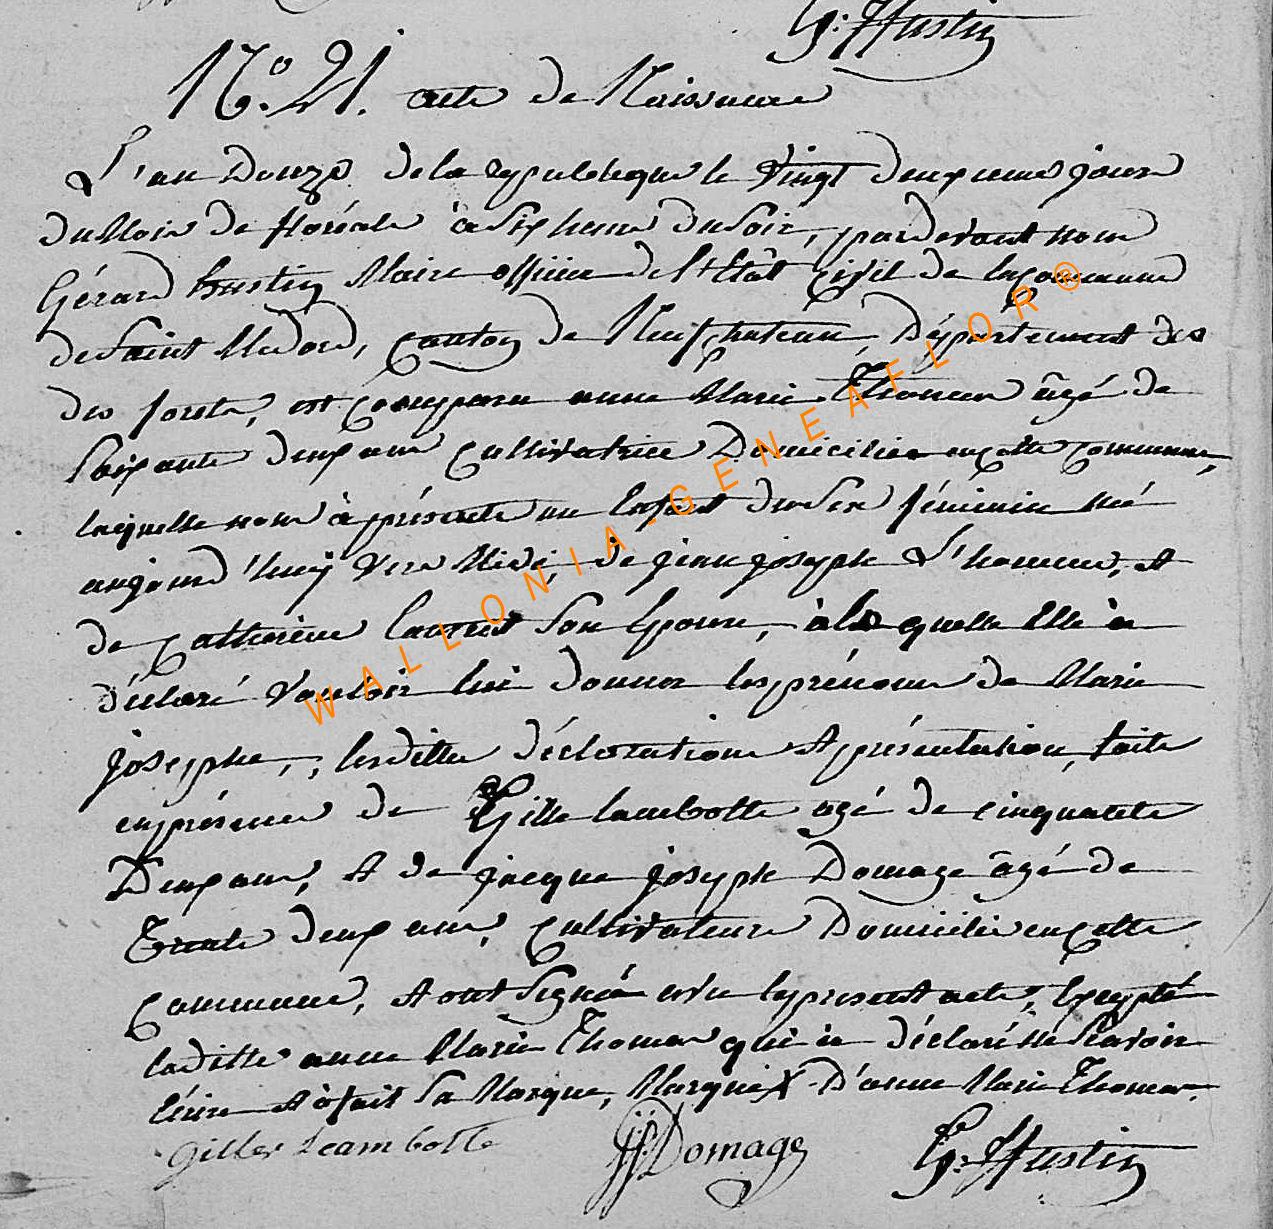 G: Hustin
N.° 21. acte de Naissance
L'an Douze de la republique le vingt deuxieme jour
du Mois de floréale à six heure du soir, pardevant nous
Gérard hustin Maire officier de l'Etât Civil de la commune
de Saint Medard, Canton de Neufchateau, Département des
des forets, est comparu anne Marie Thomas âgé de
soixante deux ans Cultivatrice Domiciliée en cette commune,
laquelle nous à présenté un Enfant du sex féminin né
aujourd'huy vers Midi, de jean joseph L'hommes, et
de catherine Laurent son Epouse, à laquelle Elle à
déclaré vouloir lui donner les prénoms de Marie
josephe, lesdittes déclaration et présentation, faite
en présence de Gille lambotte agé de cinquante
Deux ans, et de jacque joseph Domage âgé de
Trente deux ans, Cultivateurs Domicilié en cette
commune, et ont signé avec le present acte, Excepté
laditte anne Marie Thomas qui à déclaré ne scavoir
Ecrire et à fait sa Marque, Marque X D'anne Marie Thomas.
gilles Lambotte JJ Domage G: Hustin
WALLONIA-GENEAFLOR®